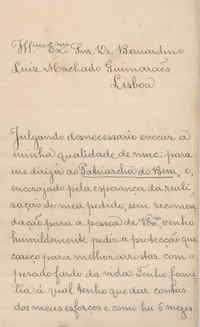 Illmo Exmo Snr. Dr. Bernardino
Luiz Machado Guimarães
Lisboa
Julgando desnecessario evocar a
minha qualidade de para
me dirigir ao Patriarcha do Bem, e,
encorajado pela esperança da reali
sação do meu pedido, sem recomen
dação para a pessoa de VExa, venho
humildemente pedir a protecção que
careço para melhor arrostar com o
pesado fardo da vida. Tenho fami
lia á qual tenho que dar contas
dos meus esforços e como há 6 mezes